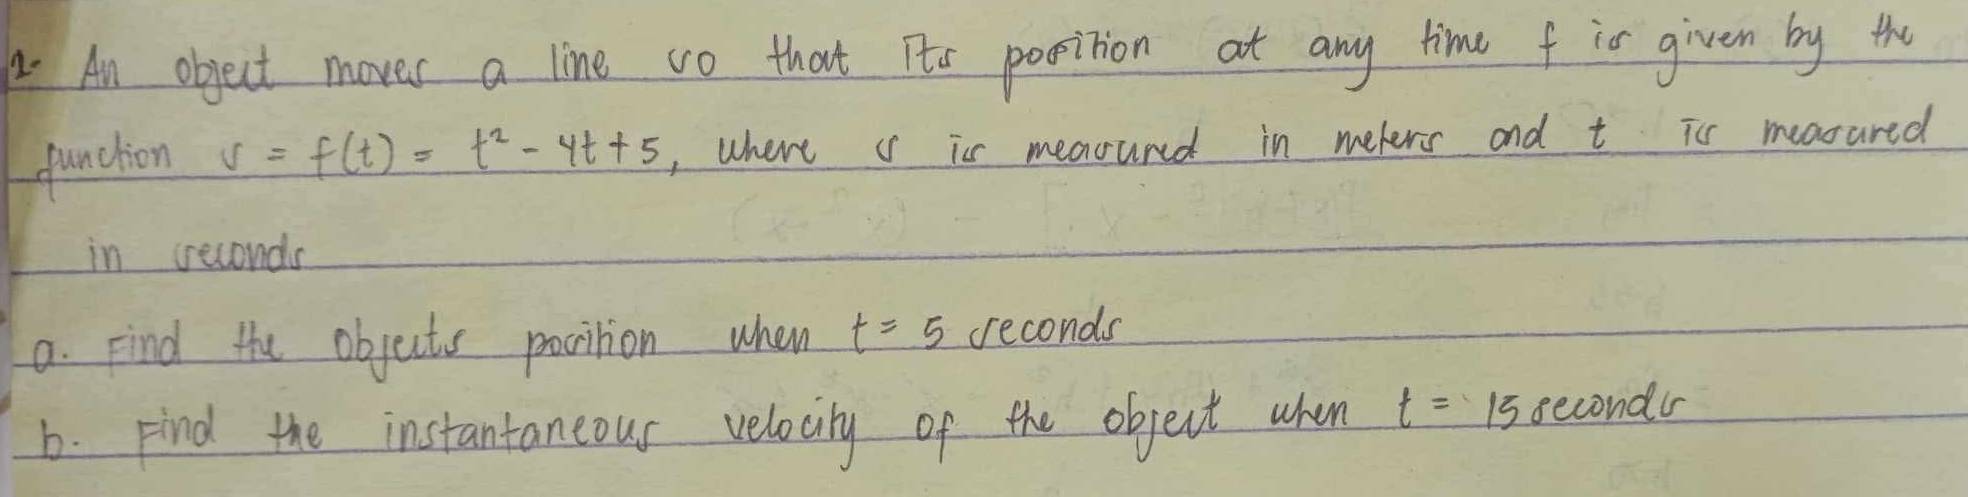 2. An object moves a line so that its position at any time f is given by the
function s = f(t) = t² - 4t + 5, where s is measured in meters and t is measured
in seconds
a. Find the objects position when t = 5 seconds
b. Find the instantaneous velocity of the object when t = 15 seconds